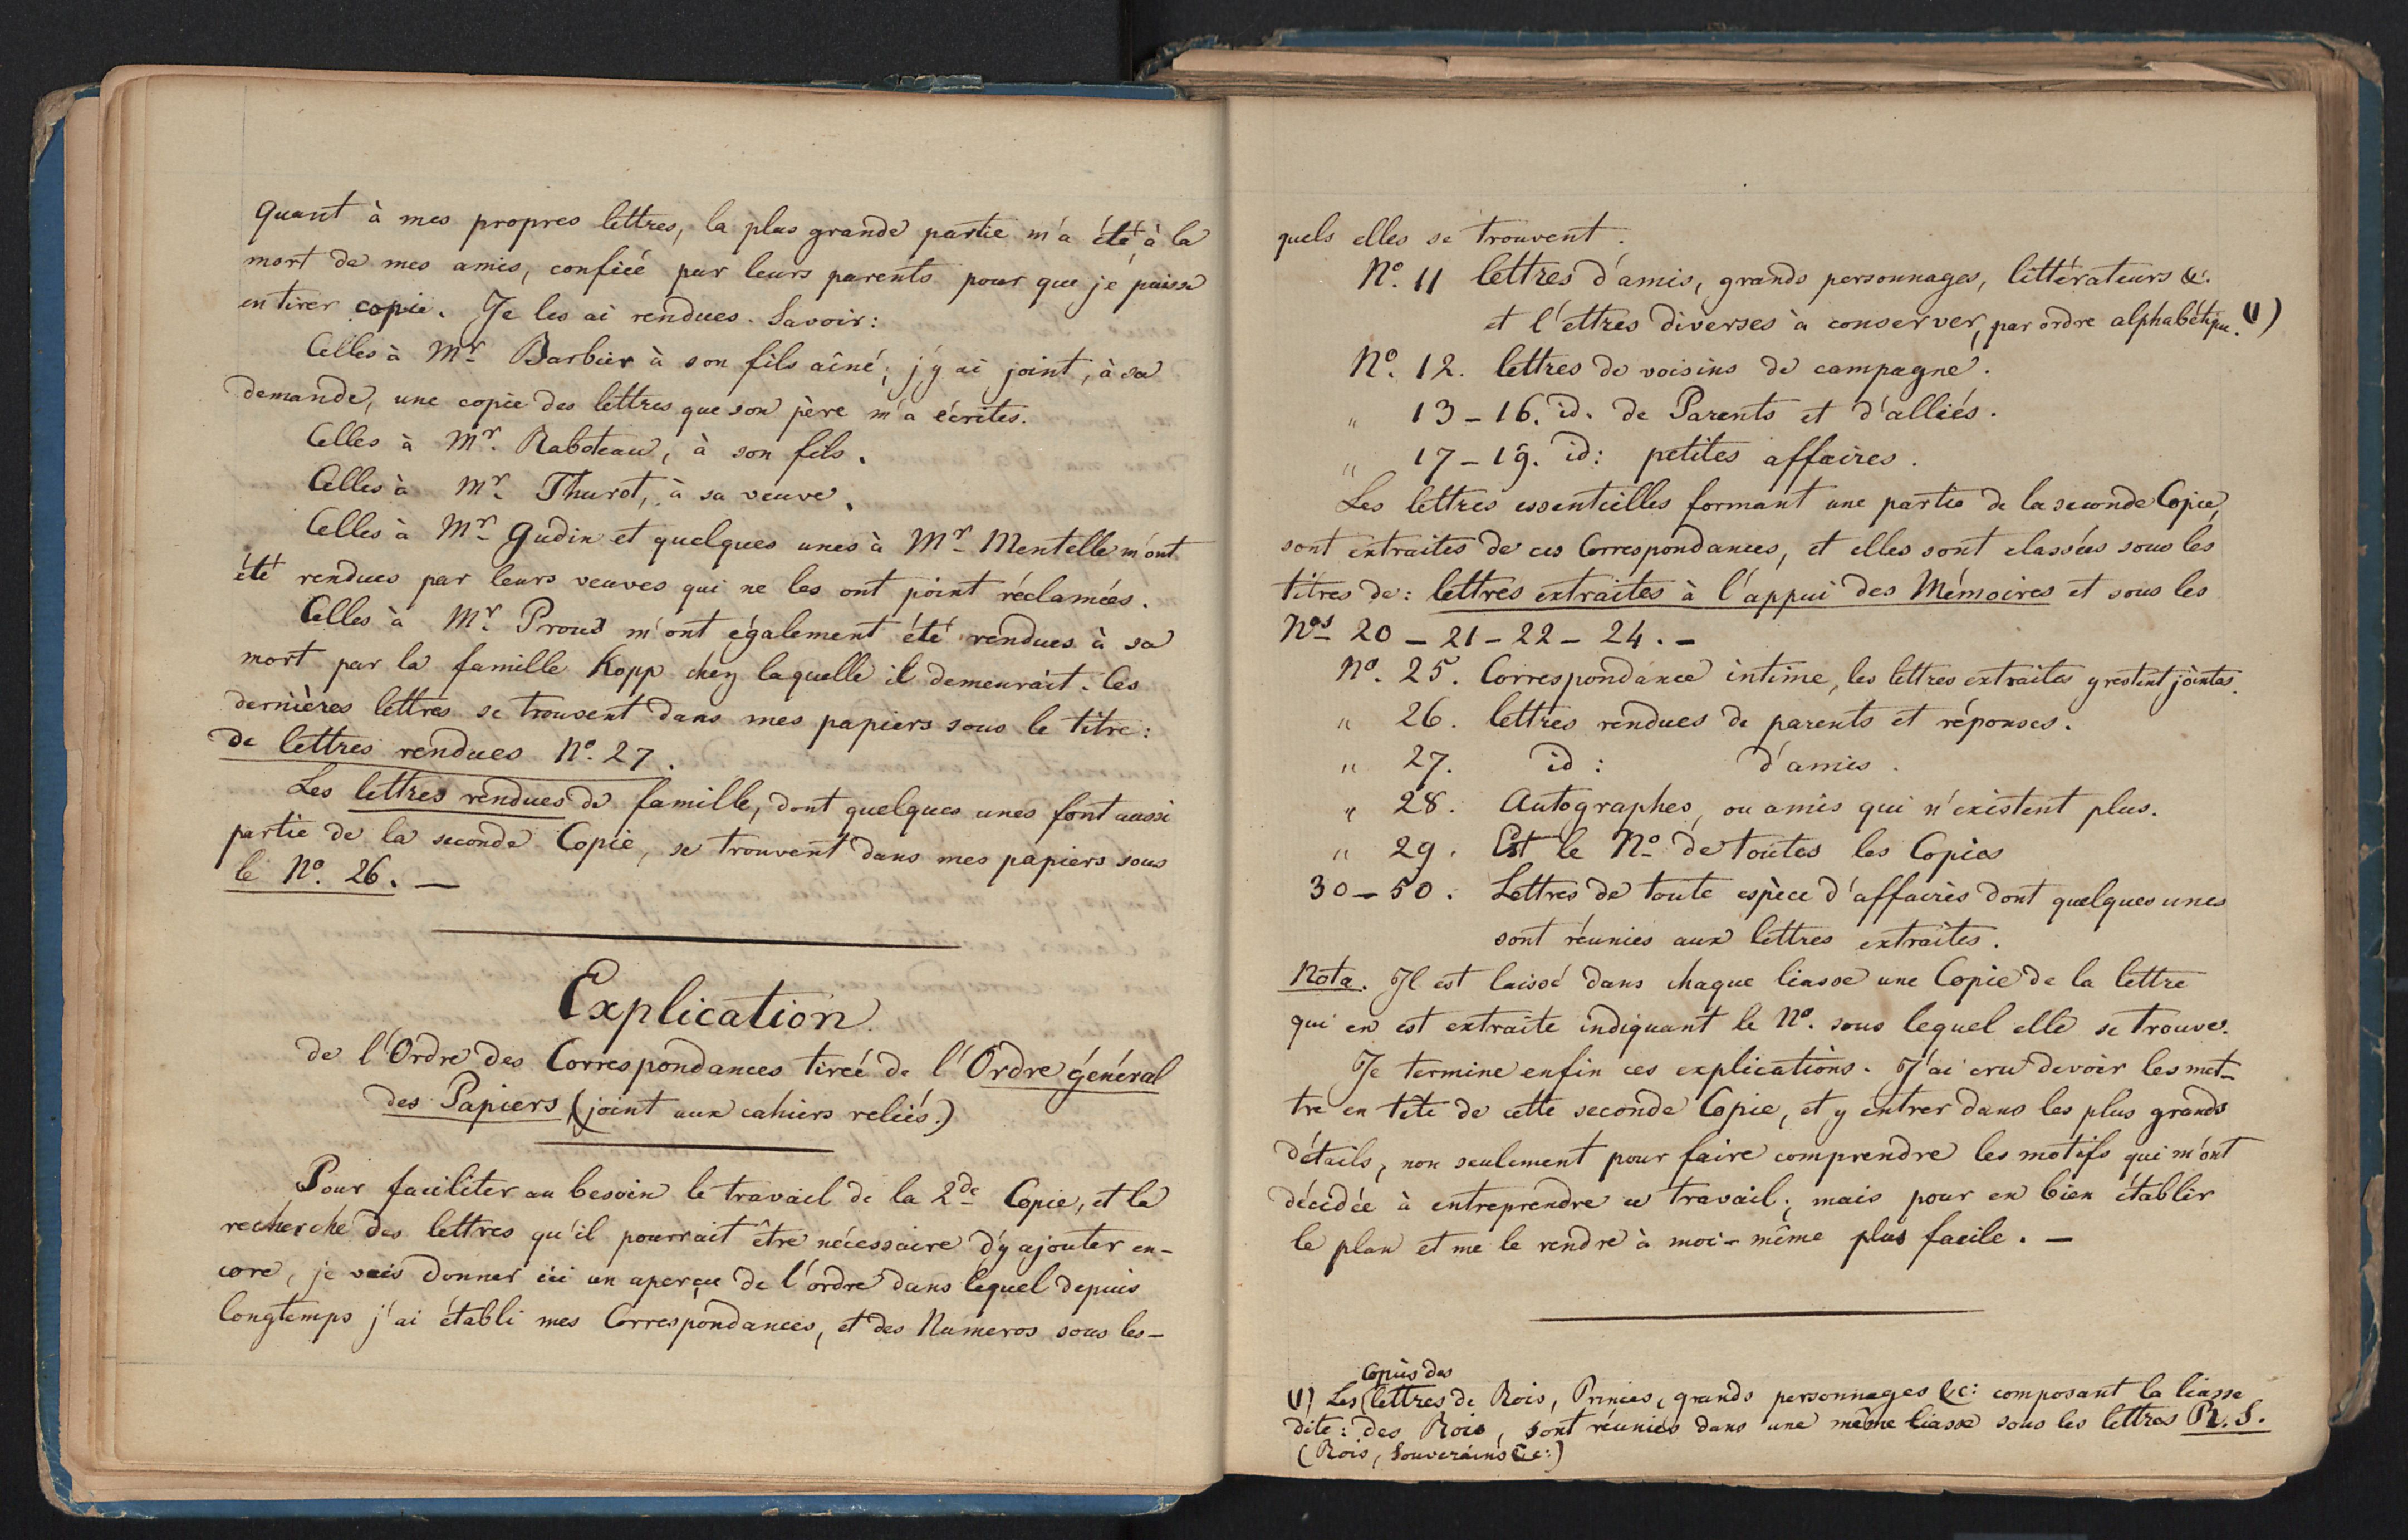 Quant à mes propres lettres, la plus grande partie m'a été, à la
mort de mes amis, confiée par leurs parents pour que je puisse
en tirer copie. Je les ai rendues. Savoir:
Celles à Mr Barbier à son fils aîné; j'y ai joint, à sa
demande, une copie des lettres que son père m'a écrites.
Celles à Mr. Raboteau, à son fils.
Celles à Mr Thurot, à sa veuve.
Celles à Mr Gudin et quelques unes à Mr Mentelle m'ont
été rendues par leurs veuves qui ne les ont point réclamées.
Celles à Mr Prous m'ont également été rendues à sa
mort par la famille Kopp chez laquelle il demeurait. Ces
dernières lettres se trouvent dans mes papiers sous le titre:
de lettres rendues No. 27.
Les lettres rendues de famille, dont quelques unes font aussi
partie de la seconde Copie, se trouvent dans mes papiers sous
le No. 26. —
Explication
de l'Ordre des Correspondances tirée de l'Ordre général
des Papiers (joint aux cahiers reliés.)
Pour faciliter au besoin le travail de la 2de Copie, et la
recherche des lettres qu'il pourrait être nécessaire d'y ajouter en-
core, je vais donner ici un aperçu de l'ordre dans lequel depuis
longtemps j'ai établi mes Correspondances, et des Numeros sous les-
quels elles se trouvent.
No. 11 lettres d'amis, grands personnages, littérateurs &c.
et l'ettres diverses à conserver, par ordre alphabétique. (1)
No. 12. lettres de voisins de campagne.
" 13 - 16. id. de Parents et d'alliés.
" 17 - 19. id: petites affaires.
Les lettres essentielles formant une partie de la seconde Copie,
sont extraites de ces Correspondances, et elles sont classées sous les
titres de: lettres extraites à l'appui des Mémoires et sous les
Nos 20 - 21 - 22 - 24. -
No. 25. Correspondance intime, les lettres extraites y restent jointes.
" 26. lettres rendues de parents et réponses.
" 27. id: d'amis.
" 28. Autographes, ou amis qui n'existent plus.
" 29. Est le No de toutes les Copies
30 - 50. Lettres de toute espèce d'affaires dont quelques unes
sont réunies aux lettres extraites.
Nota. Il est laissé dans chaque liasse une Copie de la lettre
qui en est extraite indiquant le No. sous lequel elle se trouve.
Je termine enfin ces explications. J'ai cru devoir les met-
tre en tête de cette seconde Copie, et y entrer dans les plus grands
détails, non seulement pour faire comprendre les motifs qui m'ont
décidée à entreprendre ce travail; mais pour en bien établir
le plan et me le rendre à moi-même plus facile. —
Copies des
(1) Les (lettres de Rois, Princes, grands personnages &c: composant la liasse
dite: des Rois, sont réunies dans une même liasse sous les lettres R. S.
(Rois, Souverains &c:)